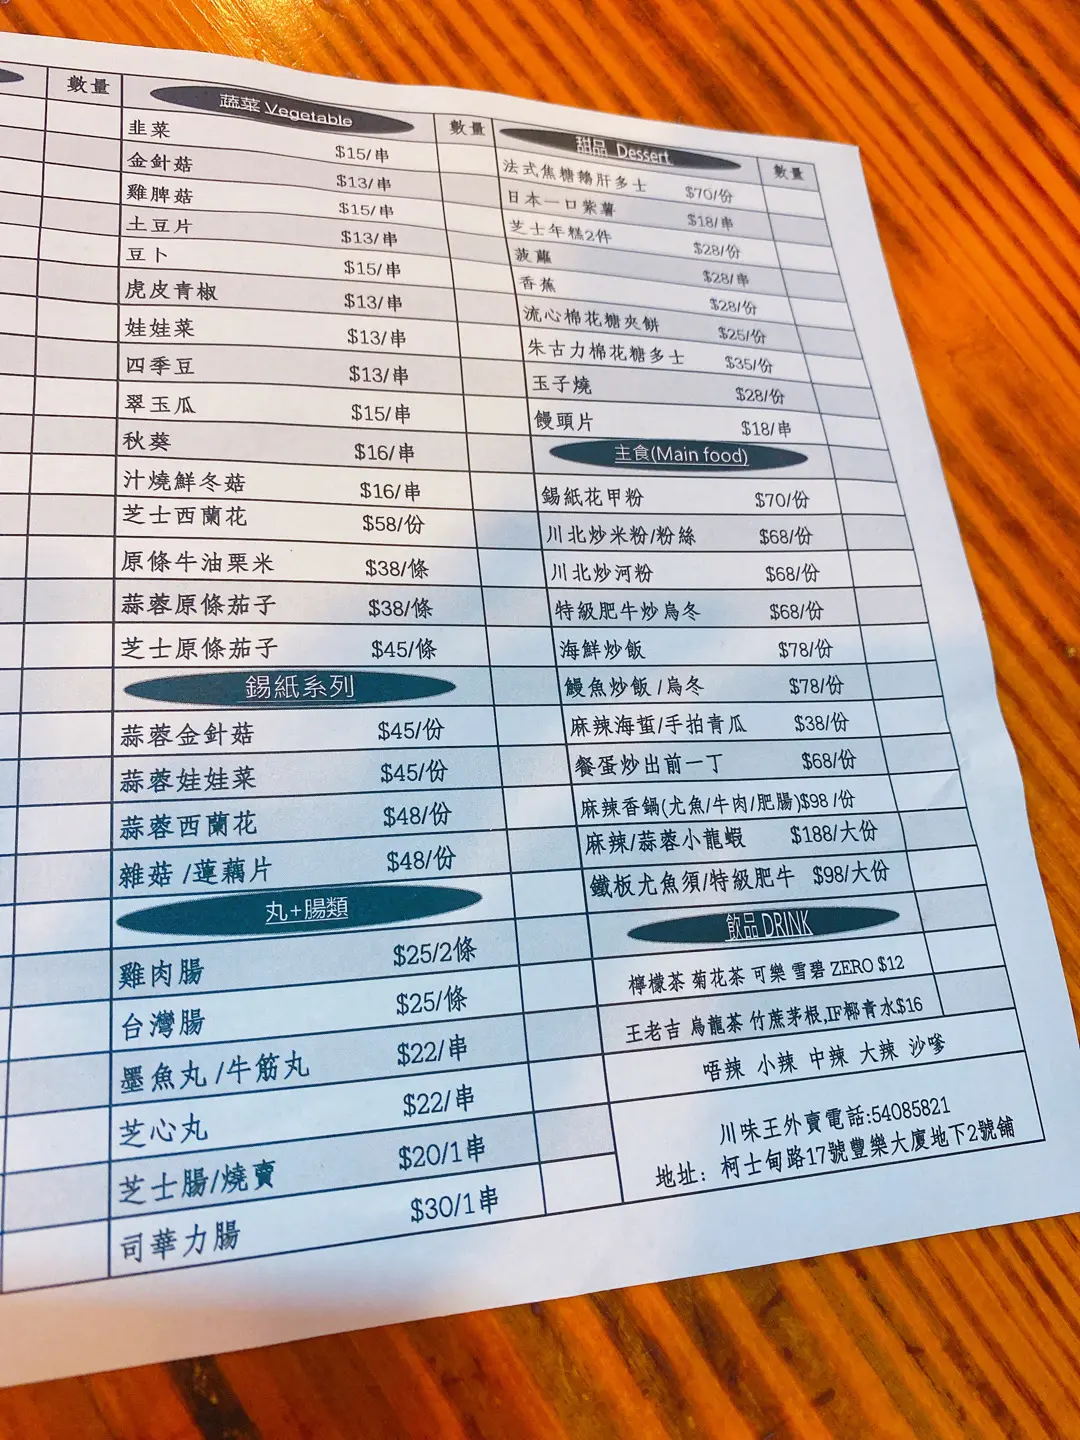 數量
蔬菜 Vegetable
數量
韭菜 $15/串
金針菇 $13/串
雞脾菇 $15/串
土豆片 $13/串
豆卜 $15/串
虎皮青椒 $13/串
娃娃菜 $13/串
四季豆 $13/串
翠玉瓜 $15/串
秋葵 $16/串
汁燒鮮冬菇 $16/串
芝士西蘭花 $58/份
原條牛油粟米 $38/條
蒜蓉原條茄子 $38/條
芝士原條茄子 $45/條
錫紙系列
蒜蓉金針菇 $45/份
蒜蓉娃娃菜 $45/份
蒜蓉西蘭花 $48/份
雜菇 /蓮藕片 $48/份
丸+腸類
雞肉腸 $25/2條
台灣腸 $25/條
墨魚丸 /牛筋丸 $22/串
芝心丸 $22/串
芝士腸/燒賣 $20/1串
司華力腸 $30/1串
甜品 Dessert
數量
法式焦糖鵝肝多士 $70/份
日本一口紫薯 $18/串
芝士年糕2件 $28/份
菠蘿 $28/串
香蕉 $28/份
流心棉花糖夾餅 $25/份
朱古力棉花糖多士 $35/份
玉子燒 $28/份
饅頭片 $18/串
主食(Main food)
錫紙花甲粉 $70/份
川北炒米粉/粉絲 $68/份
川北炒河粉 $68/份
特級肥牛炒烏冬 $68/份
海鮮炒飯 $78/份
鰻魚炒飯 /烏冬 $78/份
麻辣海蜇/手拍青瓜 $38/份
餐蛋炒出前一丁 $68/份
麻辣香鍋(尤魚/牛肉/肥腸)$98 /份
麻辣/蒜蓉小龍蝦 $188/大份
鐵板尤魚須/特級肥牛 $98/大份
飲品 DRINK
檸檬茶 菊花茶 可樂 雪碧 ZERO $12
王老吉 烏龍茶 竹蔗茅根,IF椰青水$16
唔辣 小辣 中辣 大辣 沙嗲
川味王外賣電話:54085821
地址：柯士甸路17號豐樂大廈地下2號舖